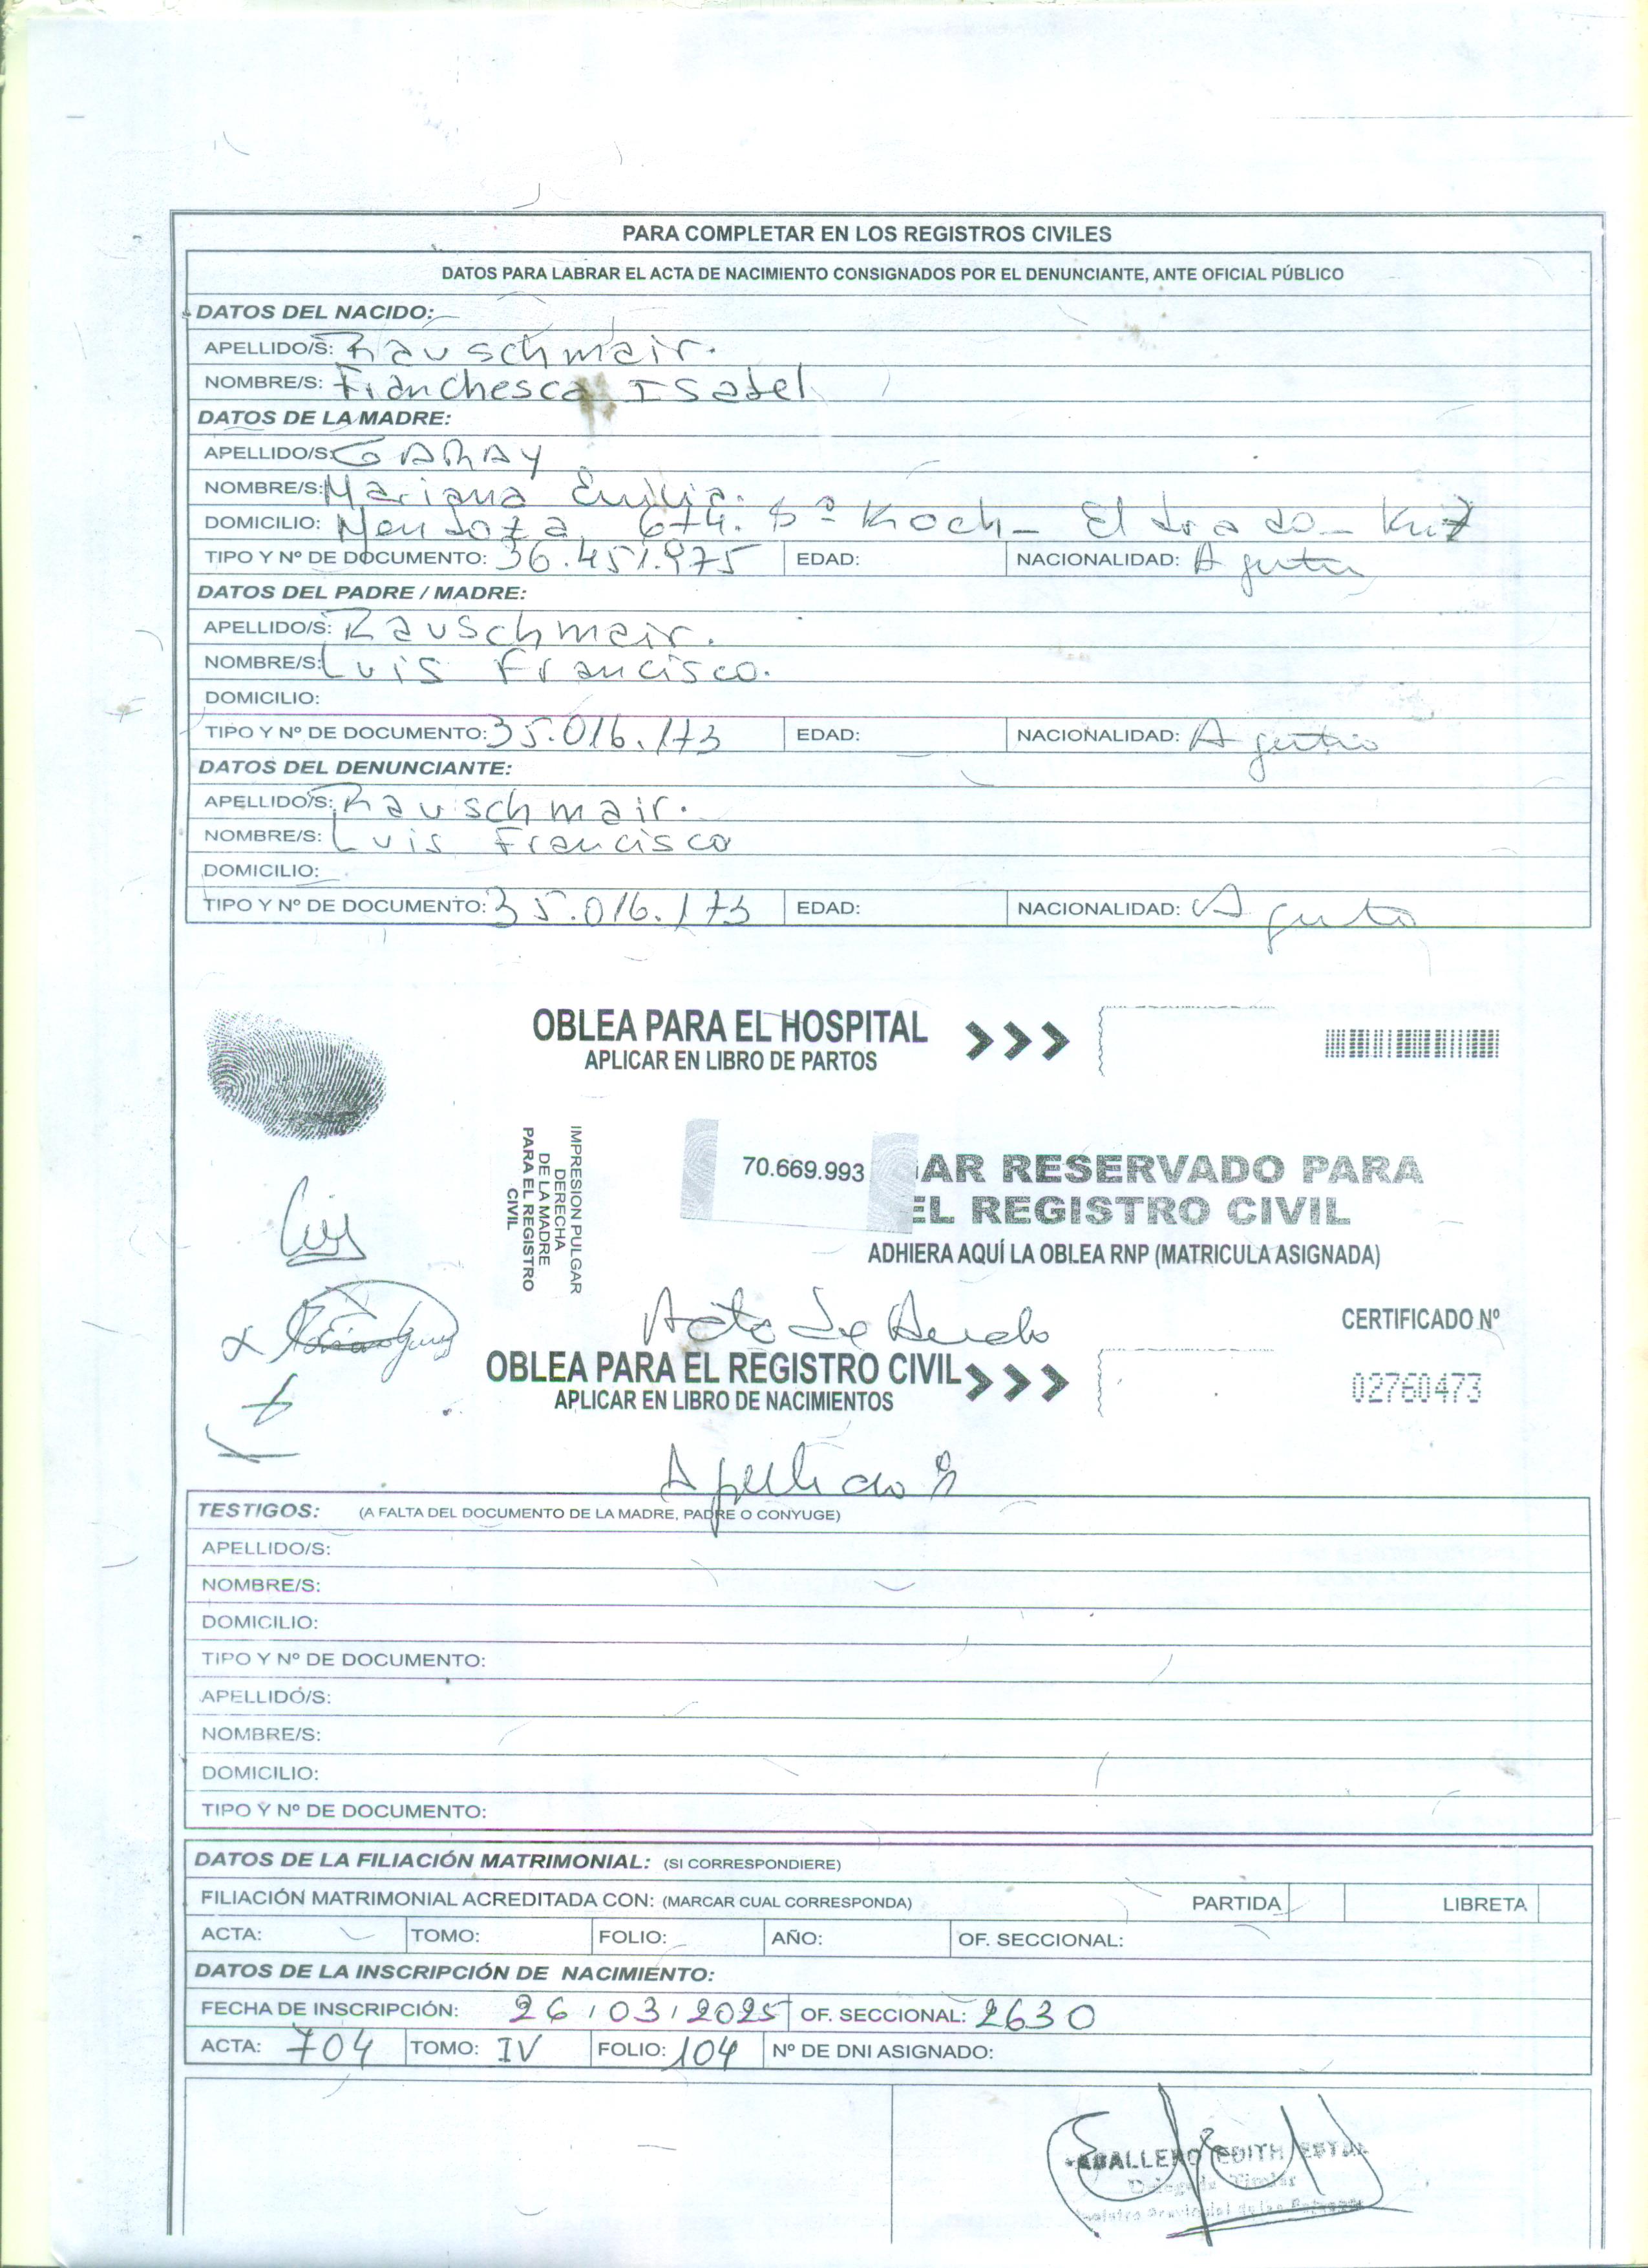 PARA COMPLETAR EN LOS REGISTROS CIVILES
DATOS PARA LABRAR EL ACTA DE NACIMIENTO CONSIGNADOS POR EL DENUNCIANTE, ANTE OFICIAL PÚBLICO
DATOS DEL NACIDO:
APELLIDO/S: Rauschmair.
NOMBRE/S: Franchesca Isabel
DATOS DE LA MADRE:
APELLIDO/S: GARAY
NOMBRE/S: Mariana Emilia.
DOMICILIO: Mendoza 674. Bº Koch - Eldorado -
TIPO Y Nº DE DOCUMENTO: 36.451.975 EDAD: NACIONALIDAD:
DATOS DEL PADRE / MADRE:
APELLIDO/S: Rauschmair.
NOMBRE/S: Luis Francisco.
DOMICILIO:
TIPO Y Nº DE DOCUMENTO: 35.016.173 EDAD: NACIONALIDAD:
DATOS DEL DENUNCIANTE:
APELLIDO/S: Rauschmair.
NOMBRE/S: Luis Francisco
DOMICILIO:
TIPO Y Nº DE DOCUMENTO: 35.016.173 EDAD: NACIONALIDAD:
OBLEA PARA EL HOSPITAL >>>
APLICAR EN LIBRO DE PARTOS
IMPRESION PULGAR
DERECHA
DE LA MADRE
PARA EL REGISTRO
CIVIL
70.669.993
AR RESERVADO PARA
EL REGISTRO CIVIL
ADHIERA AQUÍ LA OBLEA RNP (MATRICULA ASIGNADA)
CERTIFICADO Nº
OBLEA PARA EL REGISTRO CIVIL >>>
APLICAR EN LIBRO DE NACIMIENTOS
02760473
TESTIGOS: (A FALTA DEL DOCUMENTO DE LA MADRE, PADRE O CONYUGE)
APELLIDO/S:
NOMBRE/S:
DOMICILIO:
TIPO Y Nº DE DOCUMENTO:
APELLIDO/S:
NOMBRE/S:
DOMICILIO:
TIPO Y Nº DE DOCUMENTO:
DATOS DE LA FILIACIÓN MATRIMONIAL: (SI CORRESPONDIERE)
FILIACIÓN MATRIMONIAL ACREDITADA CON: (MARCAR CUAL CORRESPONDA) PARTIDA LIBRETA
ACTA: TOMO: FOLIO: AÑO: OF. SECCIONAL:
DATOS DE LA INSCRIPCIÓN DE NACIMIENTO:
FECHA DE INSCRIPCIÓN: 26/03/2025 OF. SECCIONAL: 2630
ACTA: 704 TOMO: IV FOLIO: 104 Nº DE DNI ASIGNADO:
EDITH
Titular